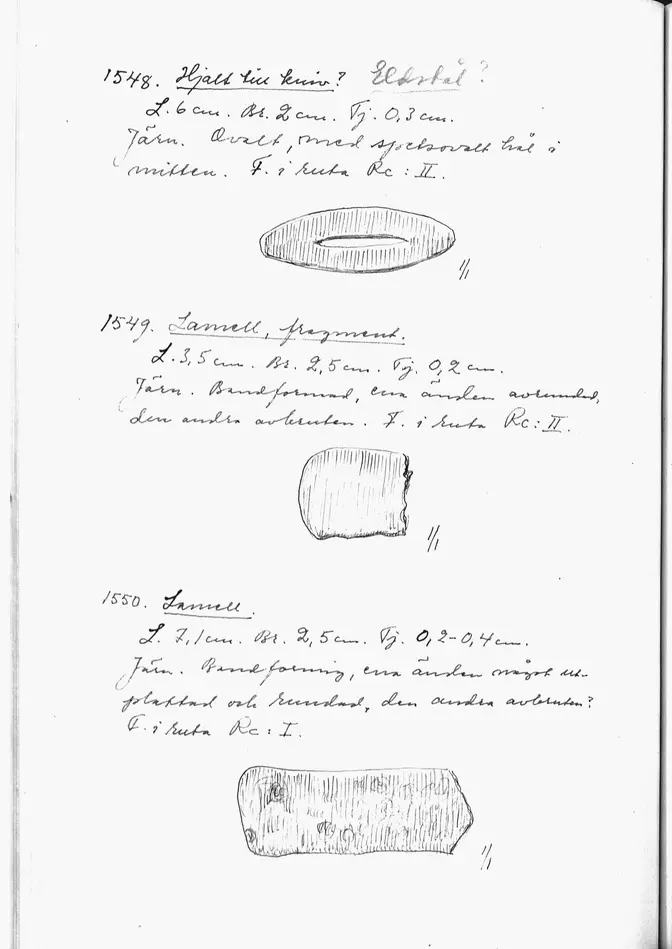 1548. Hjalt till kniv? Eldstål?
L. 6 cm. Br. 2 cm. Tj. 0,3 cm.
Järn. Ovalt, med spetsovalt hål i
mitten. F. i ruta Rc: II.
1/1
1549. Lamell, fragment.
L. 3,5 cm. Br. 2,5 cm. Tj. 0,2 cm.
Järn. Bandformad, ena änden avrundad,
den andra avbruten. F. i ruta Rc: II.
1/1
1550. Lamell.
L. 7,1 cm. Br. 2,5 cm. Tj. 0,2-0,4 cm.
Järn. Bandformig, ena änden något ut-
plattad och rundad, den andra avbruten?
F. i ruta Rc: I.
1/1